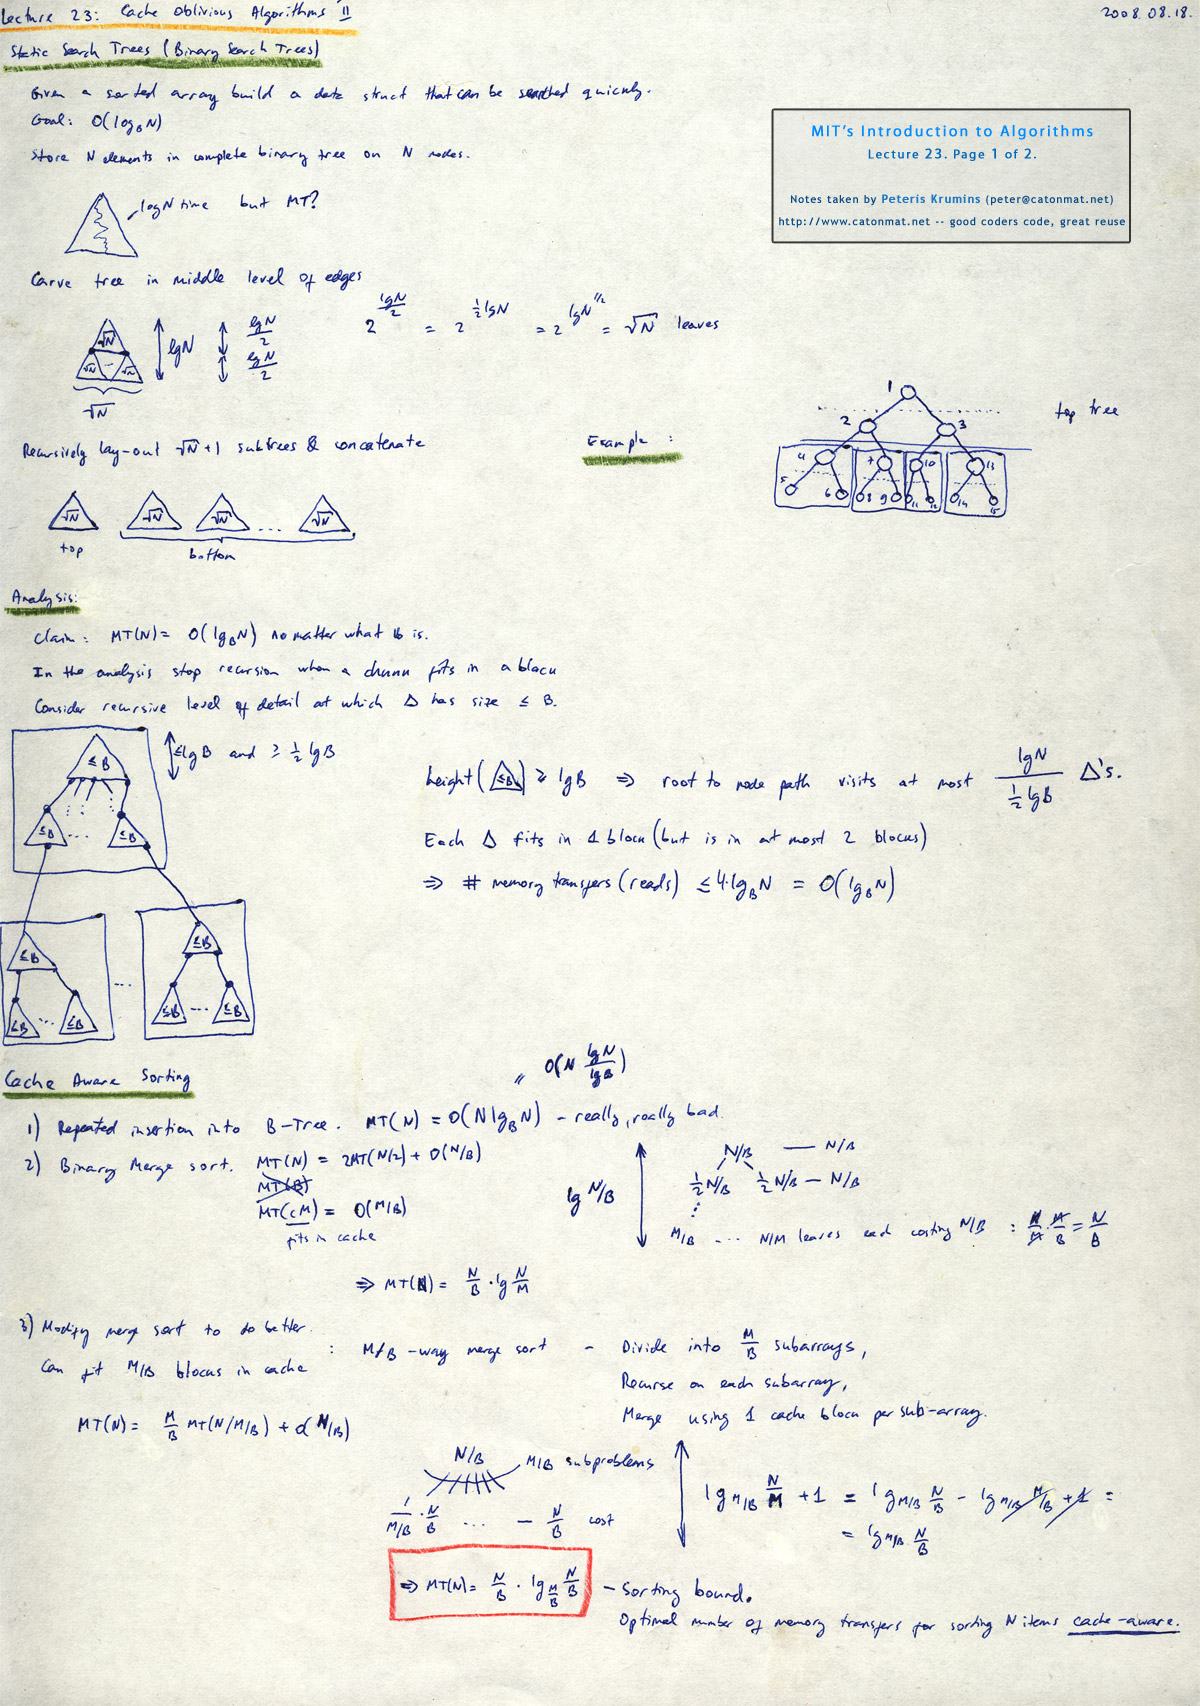 Lecture 23: Cache Oblivious Algorithms II
2008.08.18.
Static Search Trees (Binary Search Trees)
Given a sorted array build a data struct that can be searched quickly.
Goal: O(log_B N)
Store N elements in complete binary tree on N nodes.
MIT's Introduction to Algorithms
Lecture 23. Page 1 of 2.
Notes taken by Peteris Krumins (peter@catonmat.net)
http://www.catonmat.net -- good coders code, great reuse
logN time but MT?
Carve tree in middle level of edges
√N √N ... √N
√N
lgN
lgN/2
lgN/2
2^(lgN/2) = 2^(½ lgN) = 2^(lgN^(1/2)) = √N leaves
Recursively lay-out √N+1 subtrees & concatenate
√N √N √N ... √N
top
bottom
Example:
1
2 3
4 7 10 13
5 6 8 9 11 12 14 15
top tree
Analysis:
Claim: MT(N) = O(lg_B N) no matter what B is.
In the analysis stop recursion when a chunk fits in a block
Consider recursive level of detail at which Δ has size ≤ B.
≤B
≤B ... ≤B
≤lgB and ≥ ½ lgB
height(≤B) ≥ lgB ⇒ root to node path visits at most lgN / ½ lgB Δ's.
Each Δ fits in 1 block (but is in at most 2 blocks)
⇒ # memory transfers (reads) ≤ 4·lg_B N = O(lg_B N)
≤B ... ≤B
≤B ... ≤B ≤B ... ≤B
Cache Aware Sorting
= O(N lgN/lgB)
1) Repeated insertion into B-Tree. MT(N) = O(N lg_B N) - really, really bad.
2) Binary Merge sort. MT(N) = 2MT(N/2) + O(N/B)
MT(B)
MT(cM) = O(M/B)
fits in cache
lg N/B
N/B — N/B
½ N/B ½ N/B — N/B
M/B ... N/M leaves each costing N/B : N/M · M/B = N/B
⇒ MT(N) = N/B · lg N/M
3) Modify merge sort to do better.
Can fit M/B blocks in cache
: M/B-way merge sort - Divide into M/B subarrays,
Recurse on each subarray,
Merge using 1 cache block per sub-array.
MT(N) = M/B MT(N/M/B) + O(N/B)
N/B
M/B subproblems
1/(M/B) · N/B ... — N/B cost
lg_{M/B} N/M + 1 = lg_{M/B} N/B - lg_{M/B} M/B + 1 =
= lg_{M/B} N/B
⇒ MT(N) = N/B · lg_{M/B} N/B - Sorting bound.
Optimal number of memory transfers for sorting N items cache-aware.